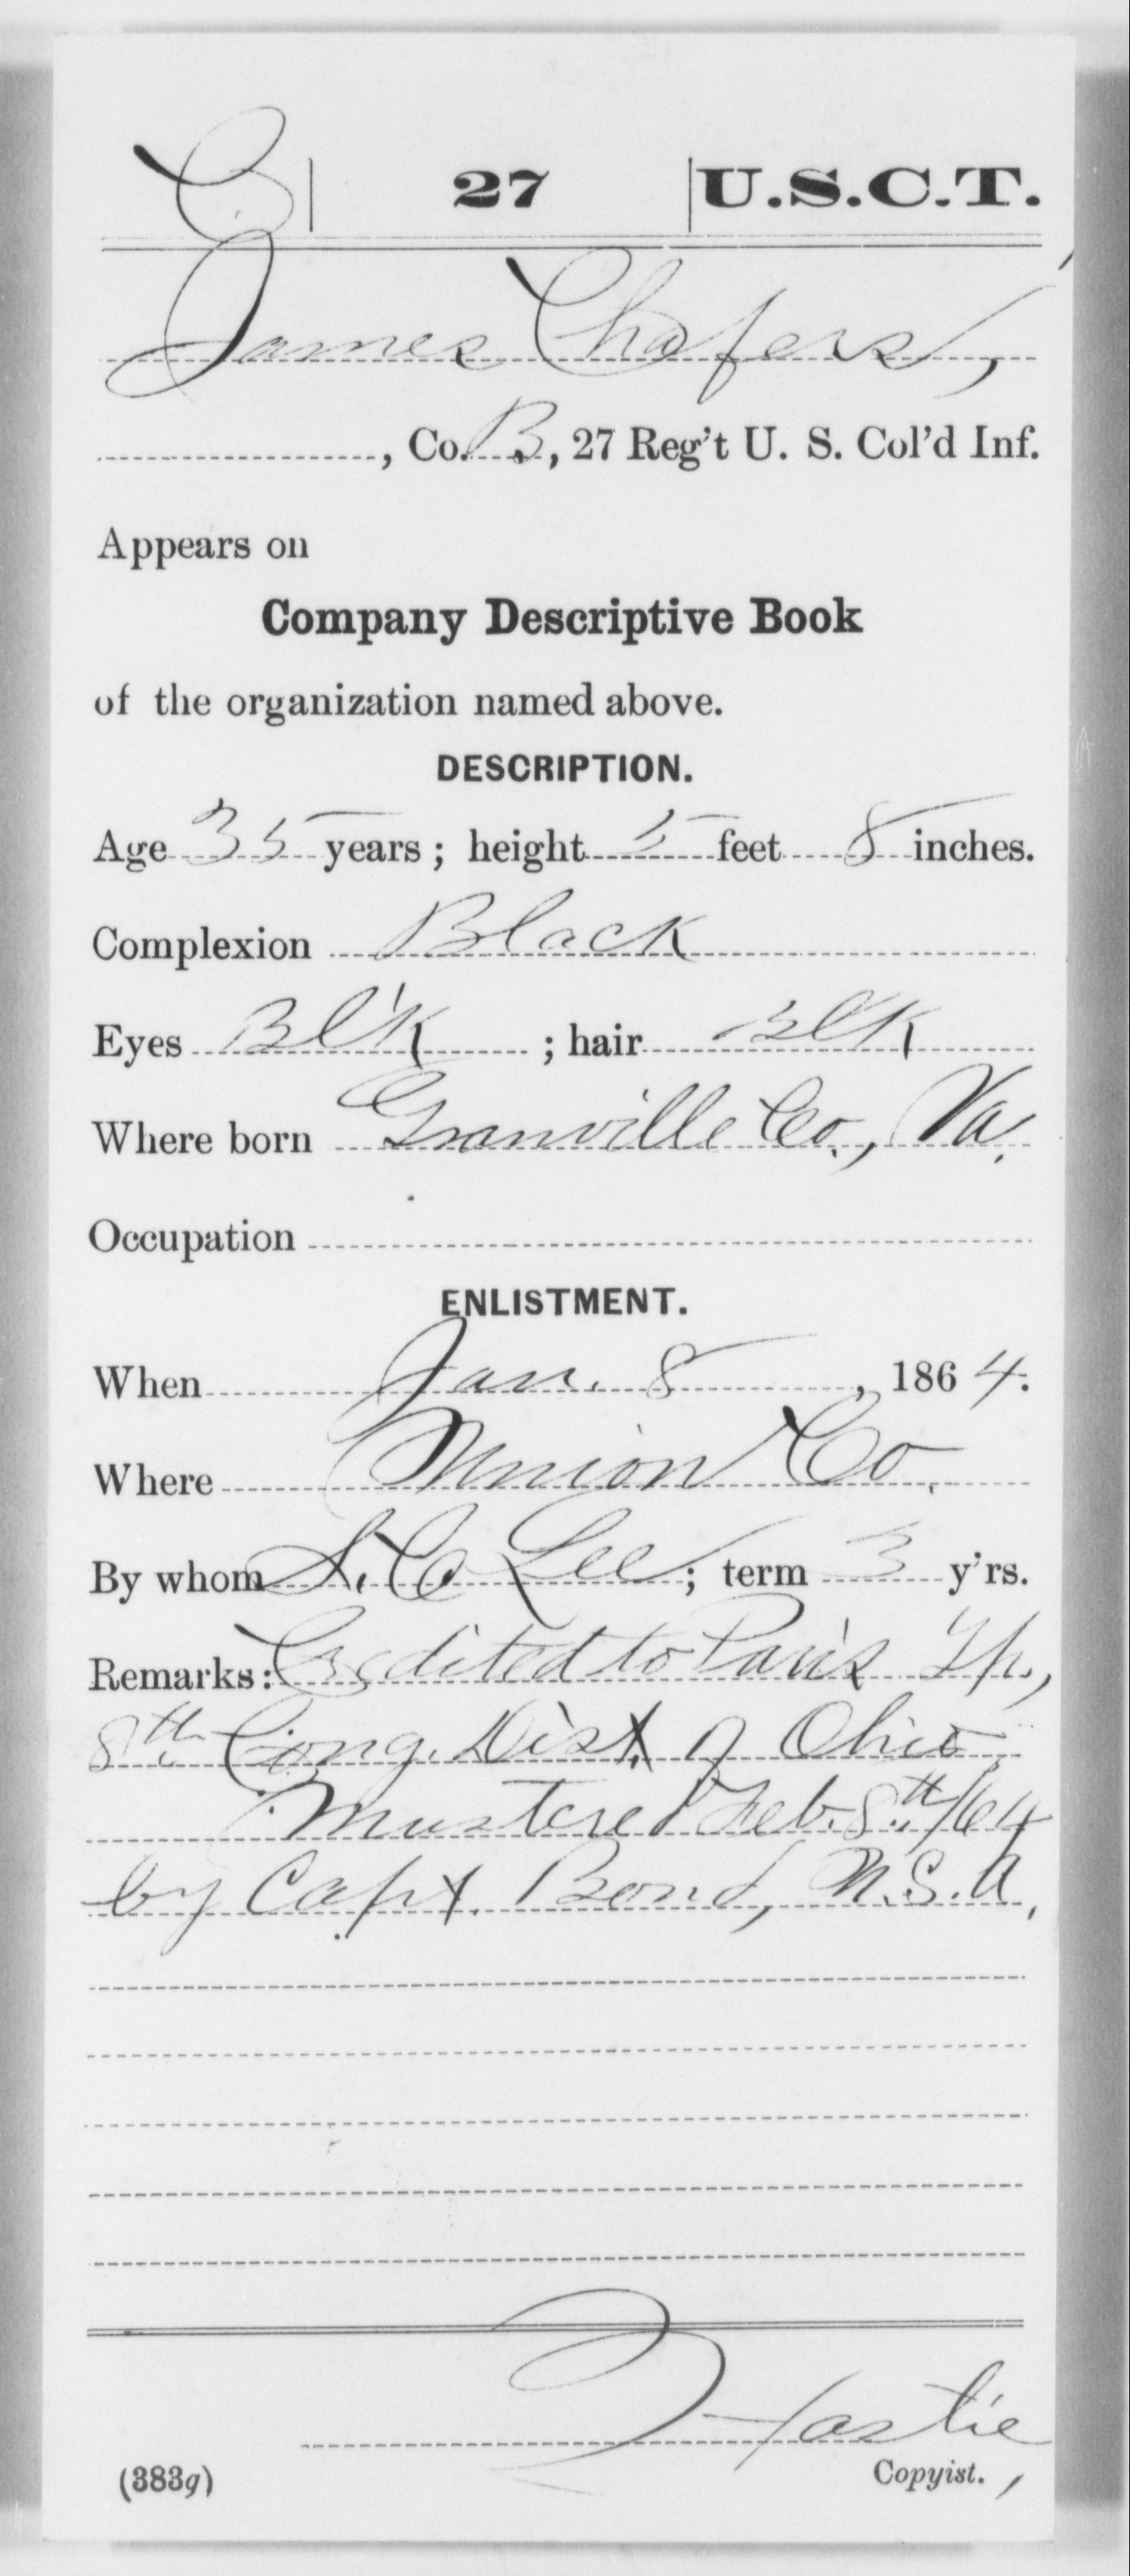 C | 27 | U.S.C.T.
James Chafers,
, Co. B, 27 Reg't U. S. Col'd Inf.
Appears on
Company Descriptive Book
of the organization named above.
DESCRIPTION.
Age 35 years; height 5 feet 8 inches.
Complexion Black
Eyes Bl'k ; hair Blk
Where born Granville Co., Va.
Occupation
ENLISTMENT.
When Jan. 8, 1864.
Where Union Co.
By whom S. C. Lee; term 3 y'rs.
Remarks: Credited to Paris Tp.,
8th Cong. Dist. of Ohio
Mustered Feb. 8th/64
by Capt. Bond, U.S.A,
Hastie
(383g) Copyist.